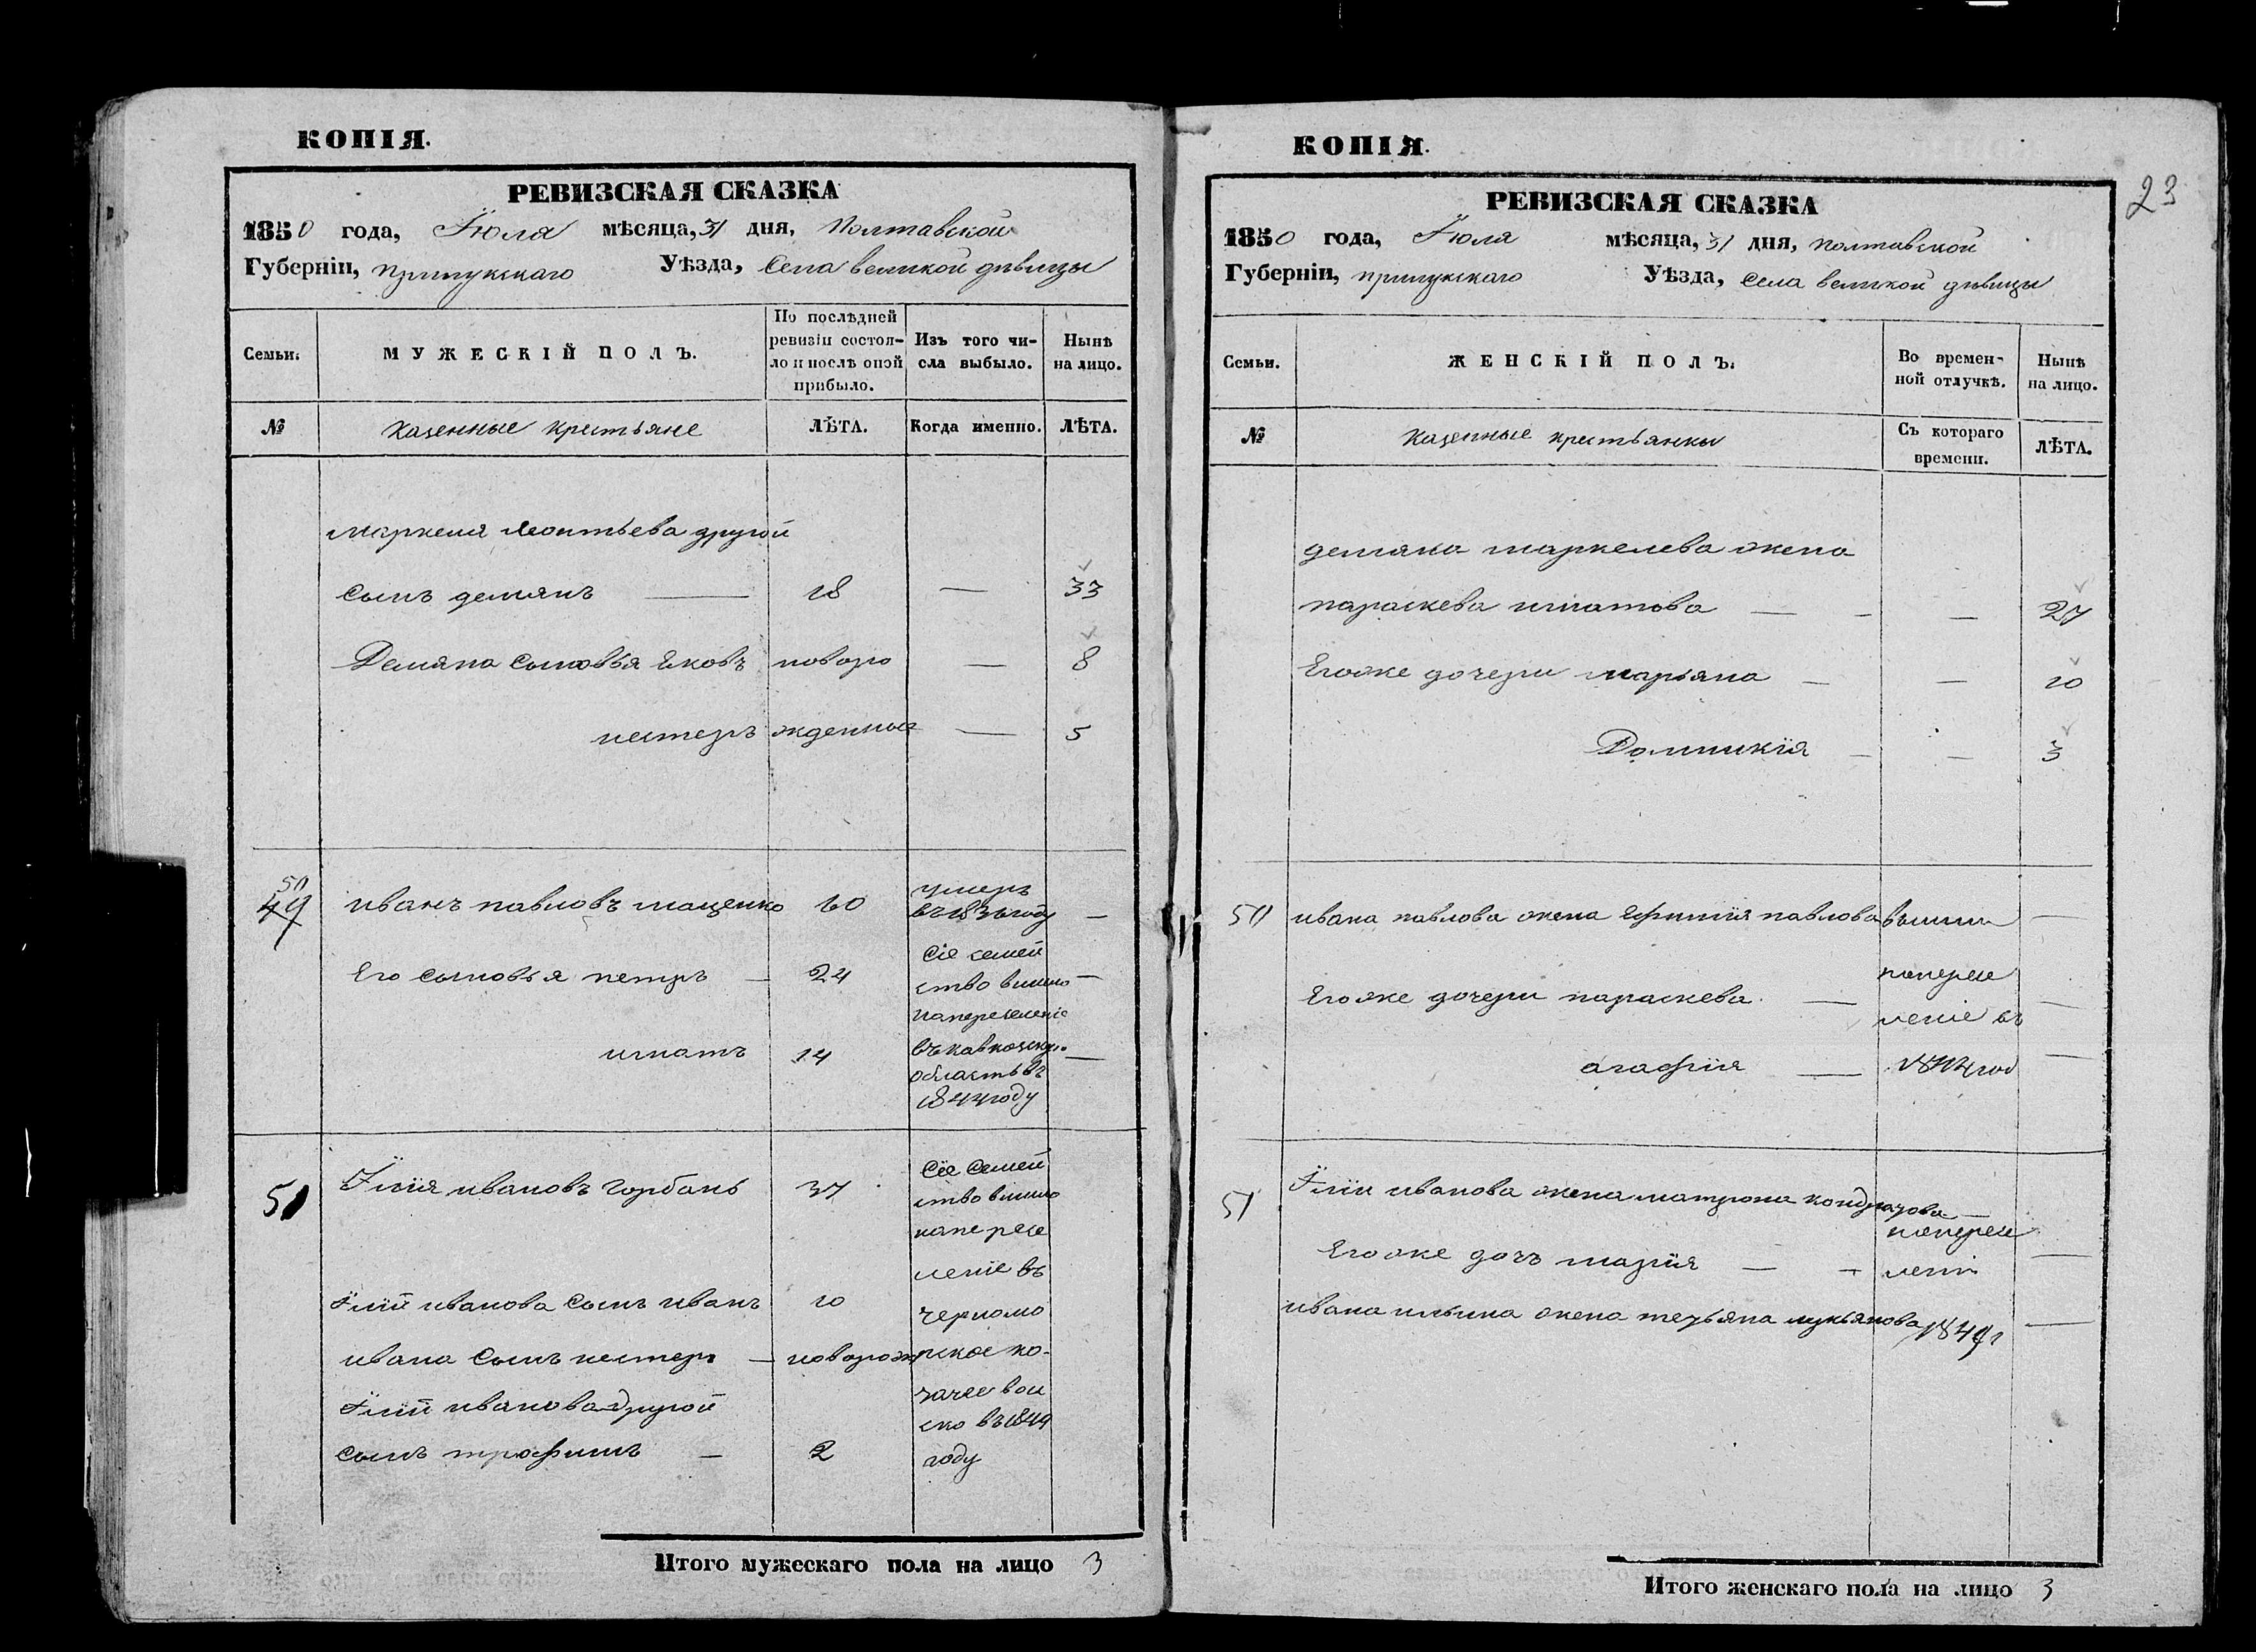 КОПІЯ.
РЕВИЗСКАЯ СКАЗКА
1850 года, Іюля мѣсяца, 31 дня, Полтавской
Губерніи, прилукскаго Уѣзда, Села великой дѣвицы
Семьи.
МУЖЕСКІЙ ПОЛЪ.
По послѣдней ревизіи состояло и послѣ оной прибыло.
Изъ того числа выбыло.
Нынѣ на лицо.
№
казенные крестьяне
ЛѢТА.
Когда именно.
ЛѢТА.
маркела леонтьева другой
сынъ демянъ — 18 — 33
Демяна сыновья яковъ новоро — 8
нестеръ жденные — 5
50
49 иванъ павловъ мащенко 60 умеръ въ 1836 году —
Его сыновья петръ — 24 Сіе семей
ство вишло —
на переселеніе
игнатъ 14 въ кавказскую —
область въ
1844 году
51 Ілія ивановъ горбань 37 Сіе Семей
ство вишло
на пересе
леніе въ
Іліи иванова сынъ иванъ 10 черномо
ивана сынъ нестеръ — новорож рское ко-
Іліи иванова другой зачее вои
сынъ трофимъ — 2 ско въ 1849
году
Итого мужескаго пола на лицо 3
КОПІЯ.
23
РЕВИЗСКАЯ СКАЗКА
1850 года, Іюля мѣсяца, 31 дня, полтавской
Губерніи, прилукскаго Уѣзда, Села великой дѣвицы
Семьи.
ЖЕНСКІЙ ПОЛЪ.
Во временной отлучкѣ.
Нынѣ на лицо.
№
казенные крестьянки
Съ котораго времени.
ЛѢТА.
демяна маркелева жена
параскева игнатова — — — 27
Егоже дочери марьяна — — 10
Домникія — — 3
50 ивана павлова жена Ефимія павлова вышли —
на пересе
Егоже дочери параскева — леніе въ —
агафія — 1844 год —
51 Іліи иванова жена матрона кондратова —
на пересе
Егоже дочь марія — — лені —
ивана ильина жена терьяна лукьянова 1849 г —
Итого женскаго пола на лицо 3